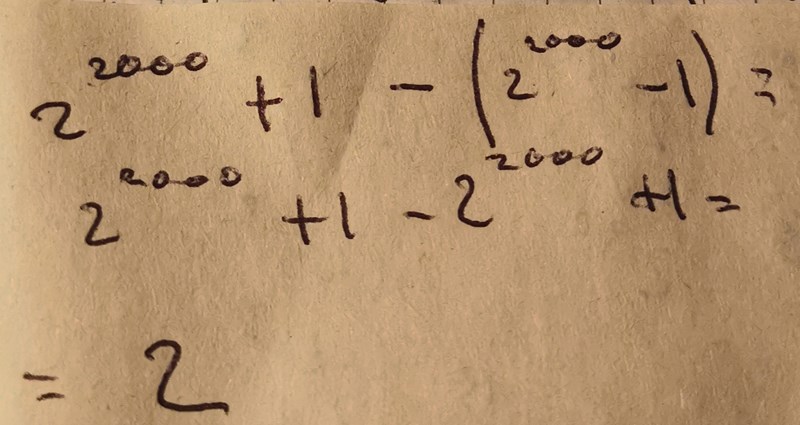 2^2000 + 1 - (2^2000 - 1) =
2^2000 + 1 - 2^2000 + 1 =
= 2